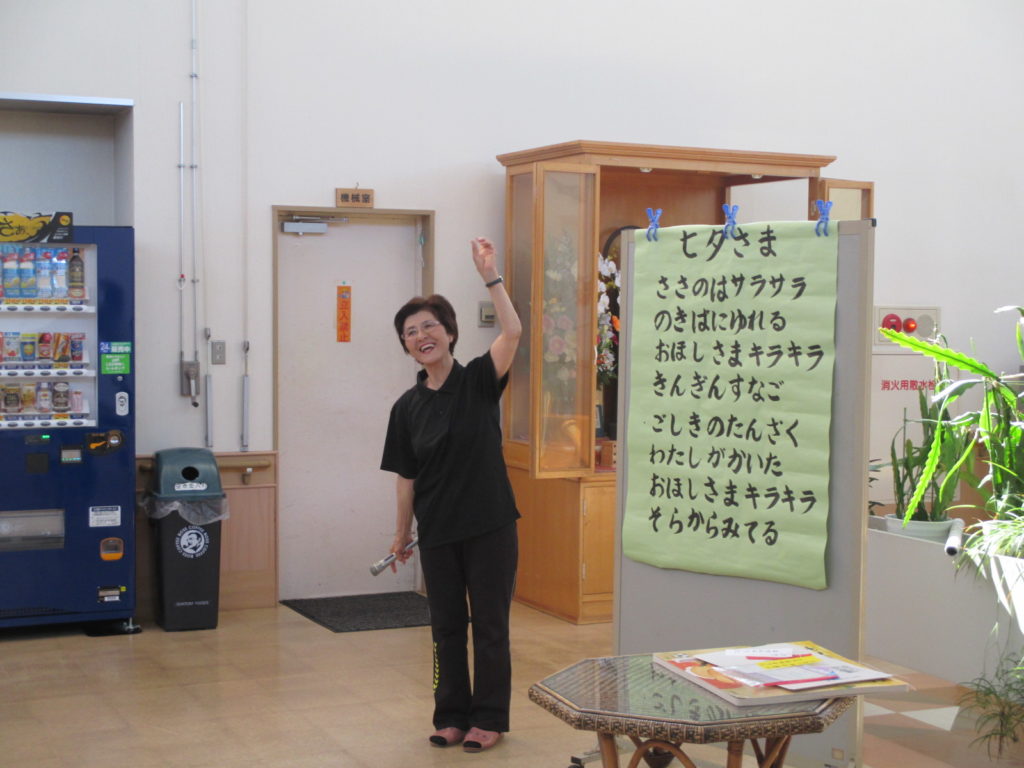 機械室
立入禁止
七夕さま
ささのはサラサラ
のきばにゆれる
おほしさまキラキラ
きんぎんすなご
ごしきのたんざく
わたしがかいた
おほしさまキラキラ
そらからみてる
消火用散水栓